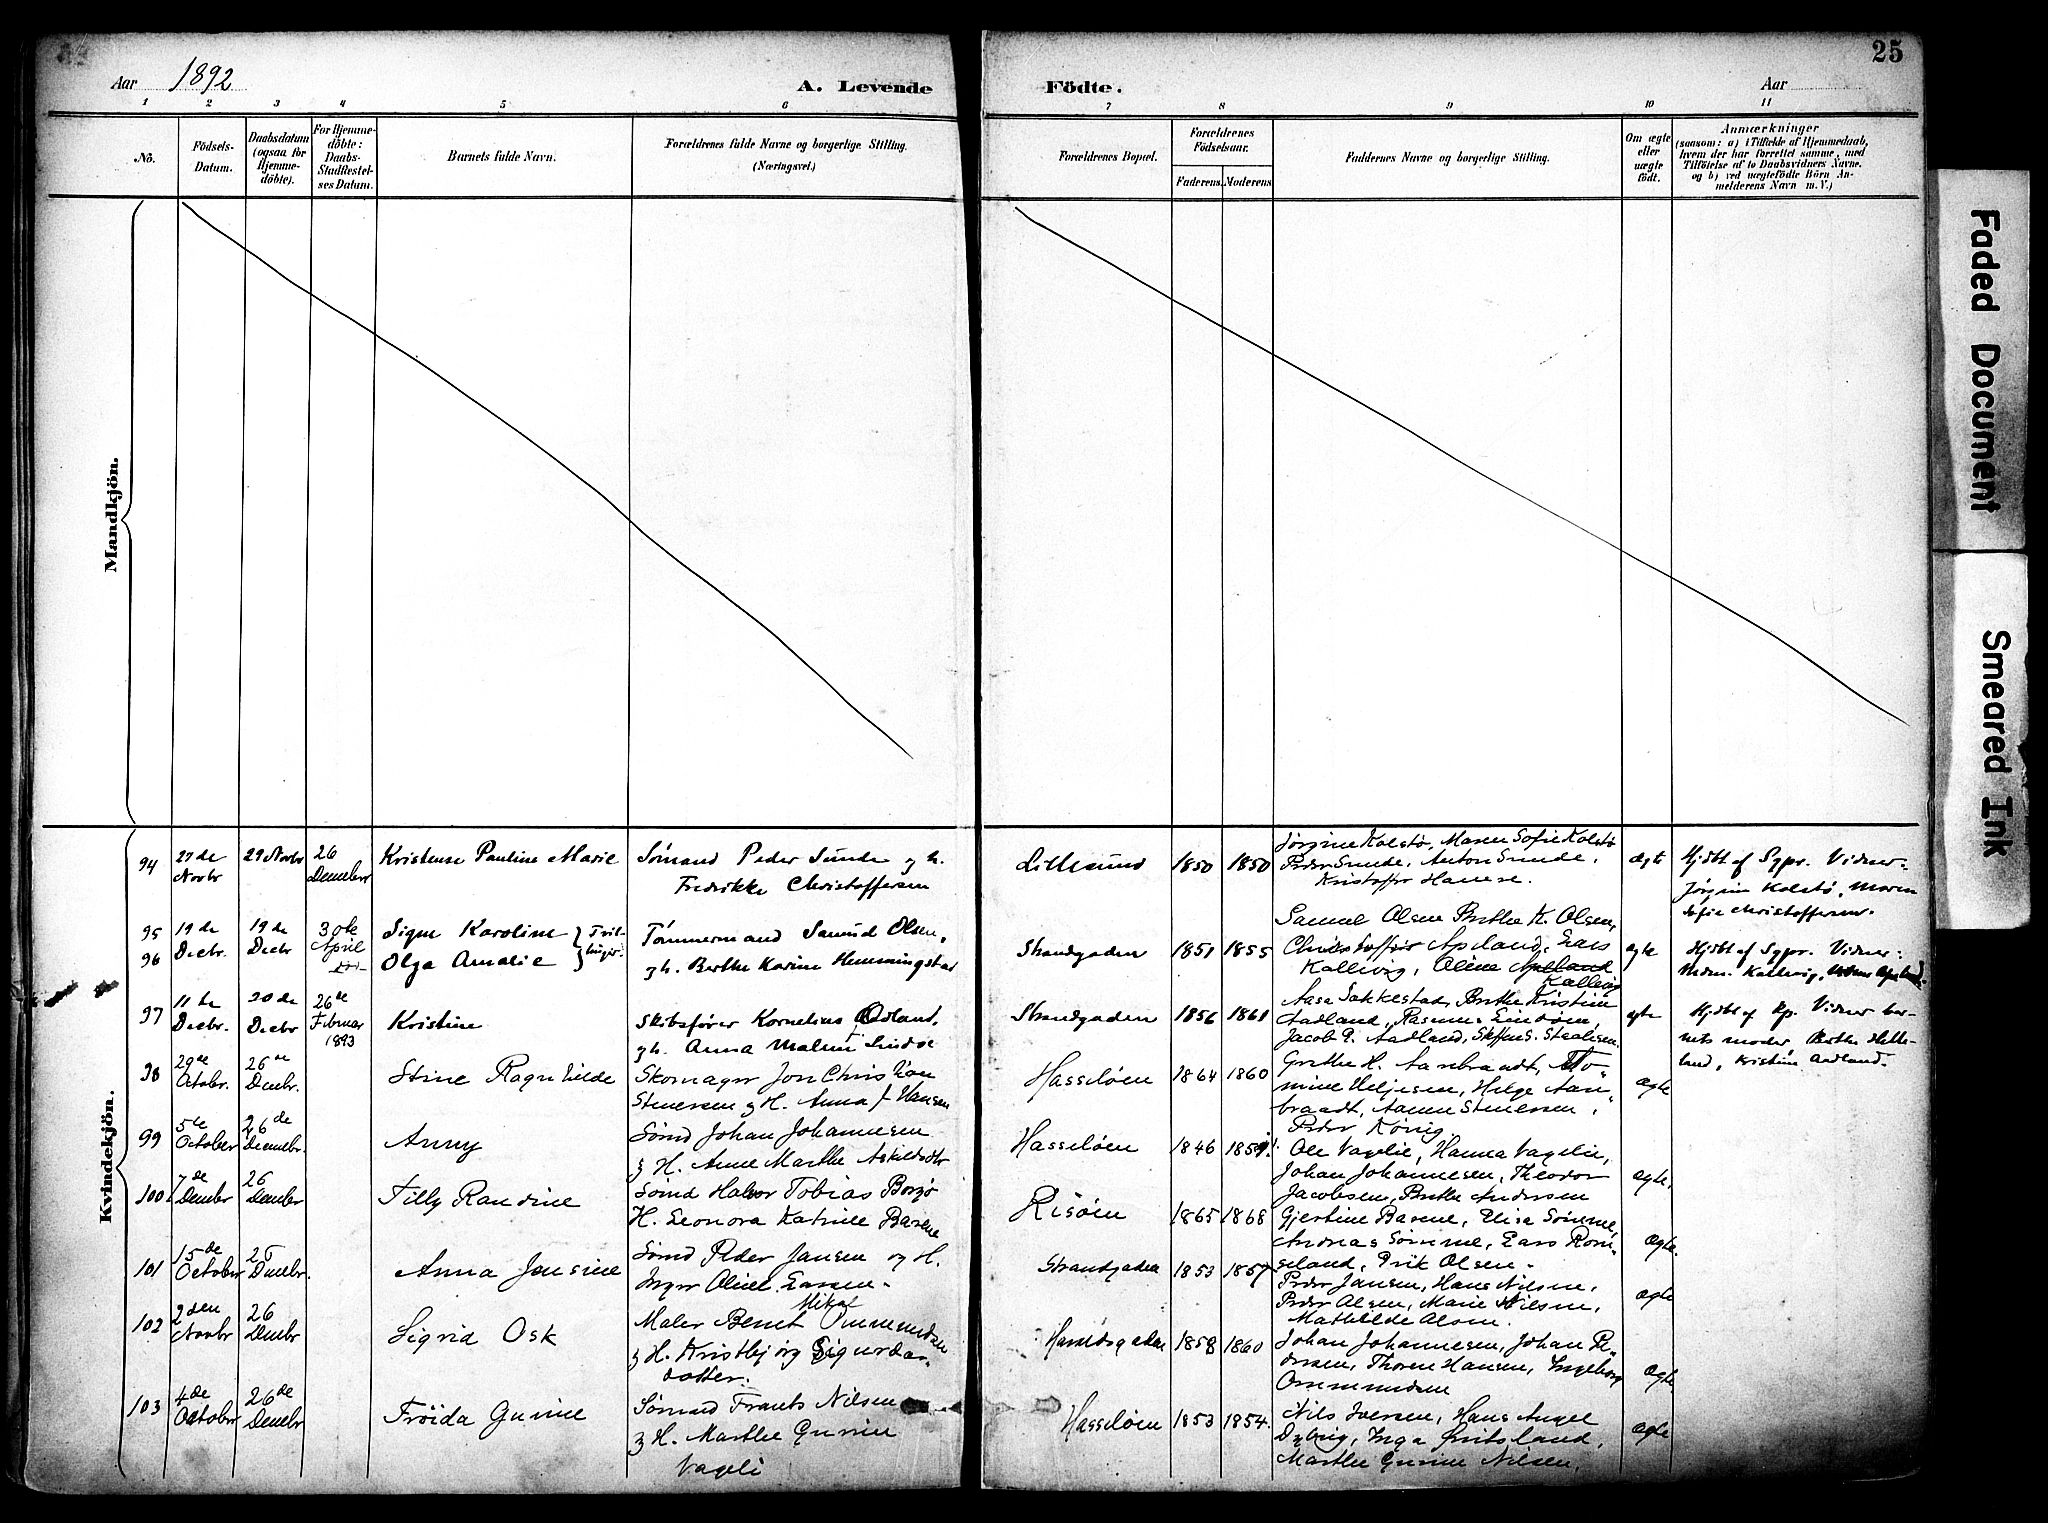 Aar 1892
A. Levende
Födte.
Aar
25
1 2 3 4 5 6 7 8 9 10 11
No.
Födsels-
Datum.
Daabsdatum
(ogsaa for
Hjemme-
döbte).
For Hjemme-
döbte:
Daabs-
Stadfestel-
ses Datum.
Barnets fulde Navn.
Forældrenes fulde Navne og borgerlige Stilling.
(Næringsvei.)
Forældrenes Bopæl.
Forældrenes
Födselsaar.
Faderens.
Moderens
Faddernes Navne og borgerlige Stilling.
Om ægte
eller
uægte
födt.
Anmærkninger
(saasom: a) i Tilfælde af Hjemmedaab,
hvem der har forrettet samme, med
Tilföielse af to Daabsvidners Navne.
og b) ved uægtefödte Börn An-
melderens Navn m. V.)
Mandkjön.
Kvindekjön.
94
27de
Novbr
29 Novbr
26
Decembr
Kristense Pauline Marie
Sømand Peder Sunde og h.
Fredrikke Christoffersen
Lillesund
1850
1850
Jørgine Kolstø, Maren Sofie Kolstø
Peder Sunde, Anton Sunde,
Kristoffer Hansen.
ægte
Hjdbt af Vidner
Jørgine Kolstø, Maren
Sofie Christoffersen.
95
96
19de
Decbr.
19de
Decbr
30te
April
Signe Karoline
Olga Amalie
Tvil-
linger.
Tømmermand Samuel Olsen,
og h. Berthe Karine Hemmingstad
Strandgaden
1851
1855
Samuel Olsen Berthe K. Olsen,
Christoffer Apeland, Lars
Kallevig, Oline Apeland
Kallevig
ægte
Hjdbt af Vidner:
Kallevig,
97
11te
Decbr.
20de
Decbr
26de
Februar
1893
Kristine
Skibsfører Kornelius Odland,
og h. Anna Malene Lindøe
Strandgaden
1856
1861
Aasa Sakkestad, Berthe Kristine
Aadland, Rasmus Lindøen,
Jacob P. Aadland, Steffen S. Staalesen
ægte
Hjdbt af Vidner bar-
nets moder Berthe
Kristine Aadland.
98
29de
Octobr.
26de
Decmbr.
Stine Ragnhilde
Skomager Jon Christian
Stenersen & H. Anna J. Hansen
Hasseløen
1864
1860
Grethe H. Aarebraadt, Tho-
mine Heljesen, Helge Aare-
braadt, Aanen Stenersen,
Peder König.
ægte
99
5te
October
26de
Decmbr.
Anny
Sømd Johan Johannesen
& H. Anne Marthe Askildsdtr
Hasseløen
1846
Ole Vagelie, Hanna Vagelie,
Johan Johannesen, Theodor
Jacobsen, Berthe Andersen
ægte.
100
7de
Decmbr
26
Decmbr
Tilly Randine
Sømd Tobias Borgø
H. Leonora Katrine Barene
Risøen
1865
1868
Gjertine Barene, Elisa Sømme,
Andreas Sømme, Lars Rom-
seland, Erik Olsen.
ægte
101
15de
October
26
Decmbr.
Anna Jensine
Sømd Peder Jansen og H.
Inger Oline Larsen.
Strandgaden
1853
1857
Peder Jansen, Hans Nilsen,
Peder Olsen, Marie Nilsen,
Mathilde Olsen.
ægte
102
2den
Novbr
26
Decmbr
Sigrid Osk
Mikal
Maler Bernt Ommundsen
& H. Kristbjörg Sigurdar-
dotter.
Haraldsgaden
1858
1860
Johan Johannesen, Johan Pe-
dersen, Thoren Hansen, Ingeborg
Ommundsen
ægte
103
4de
October
26de
Decmbr
Fröida Gurine
Sømand Frants Nilsen
& H. Marthe Gurine
Vageli
Hasseløen
1853
1854.
Nils Iversen, Hans Angel
Dybvig, Inga Kritsland,
Marthe Gurine Nilsen.
ægte
Faded Document
Smeared Ink